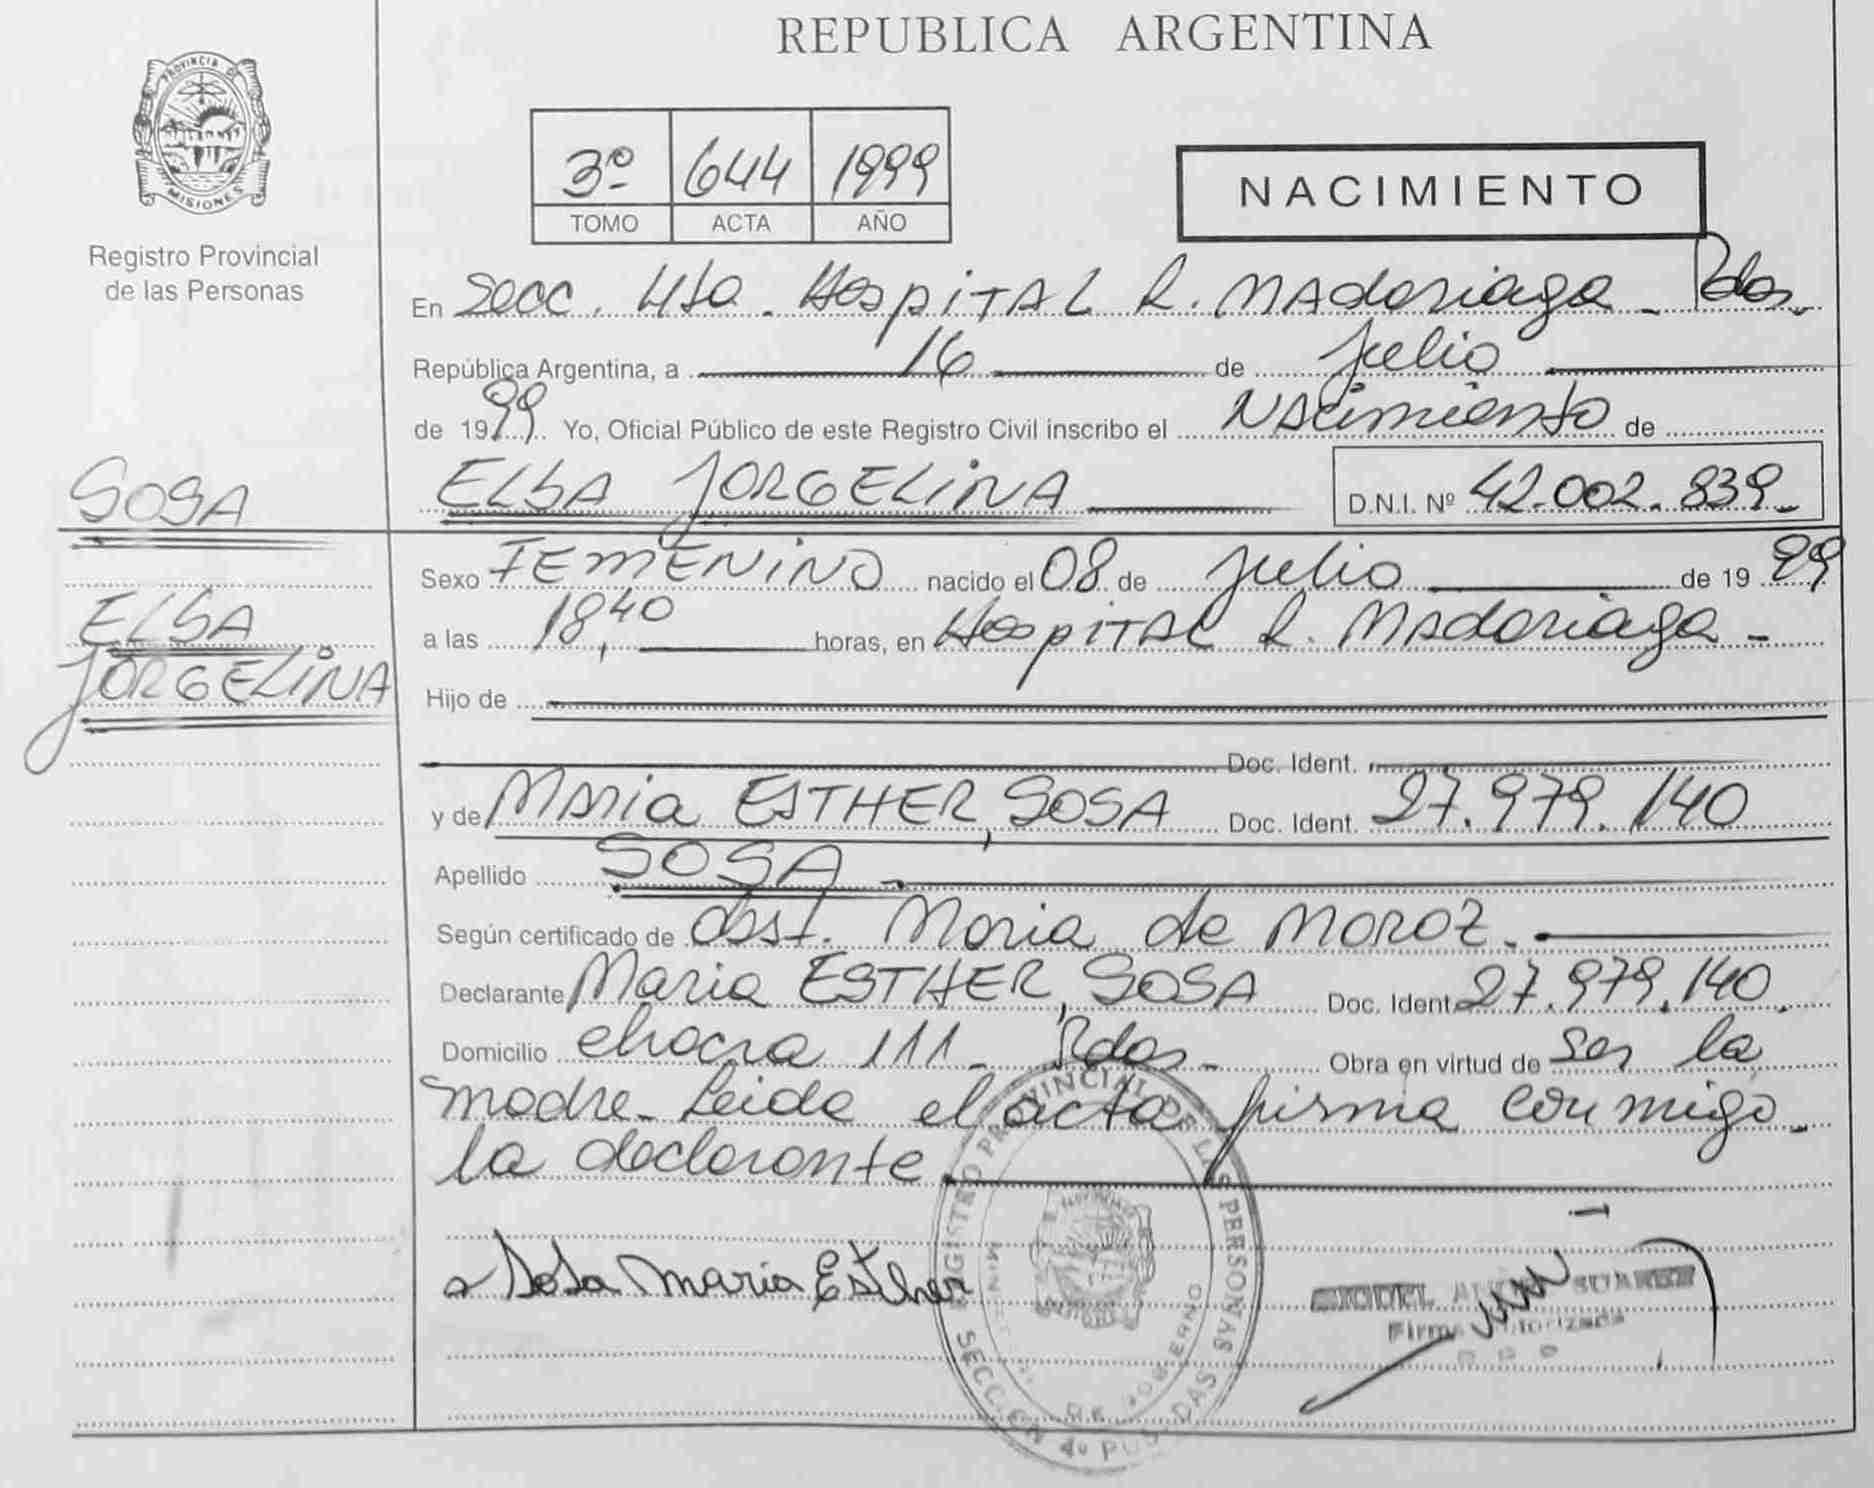 REPUBLICA ARGENTINA
PROVINCIA DE
MISIONES
Registro Provincial
de las Personas
3º 644 1999
TOMO ACTA AÑO
NACIMIENTO
En Secc. 4ta. Hospital R. Madariaga - Pdas.
República Argentina, a 16 de Julio
de 1999 Yo, Oficial Público de este Registro Civil inscribo el Nacimiento de
SOSA
ELSA JORGELINA
D.N.I. Nº 42.002.839-
ELSA
JORGELINA
Sexo FEMENINO nacido el 08 de Julio de 1999
a las 18,40 horas, en Hospital R. Madariaga -
Hijo de
Doc. Ident.
y de Maria ESTHER, SOSA Doc. Ident. 27.979.140
Apellido SOSA -
Según certificado de Obst. Maria de Moroz.
Declarante Maria ESTHER, SOSA Doc. Ident 27.979.140.
Domicilio chacra 111 - Pdas - Obra en virtud de ser la
madre - Leida el acta firma conmigo -
la declarante
Sosa Maria Esther
REGISTRO PROVINCIAL DE LAS PERSONAS
SUAREZ
Firma Autorizada